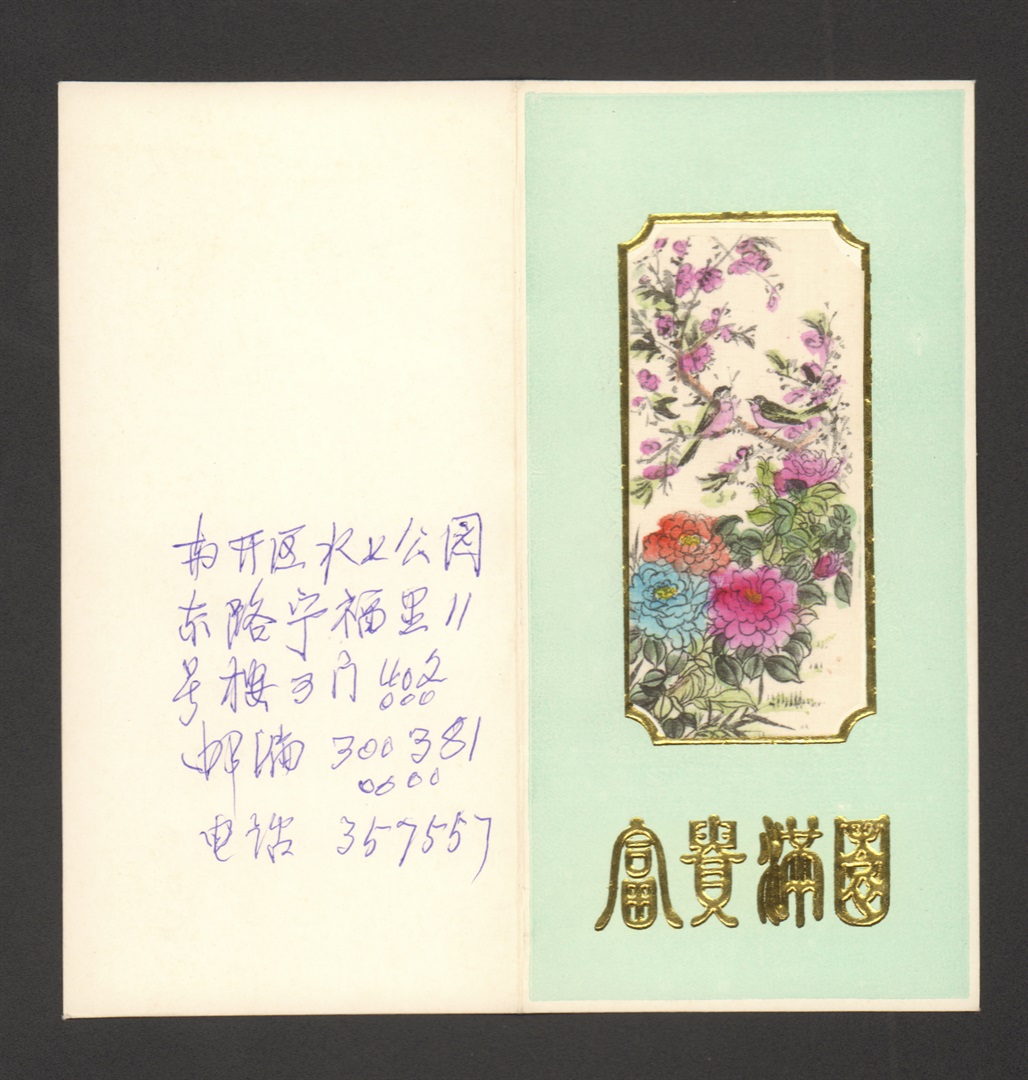 南开区水上公园
东路宁福里11
号楼3门402
000
邮编 300381
0000
电话 357557
富貴滿園